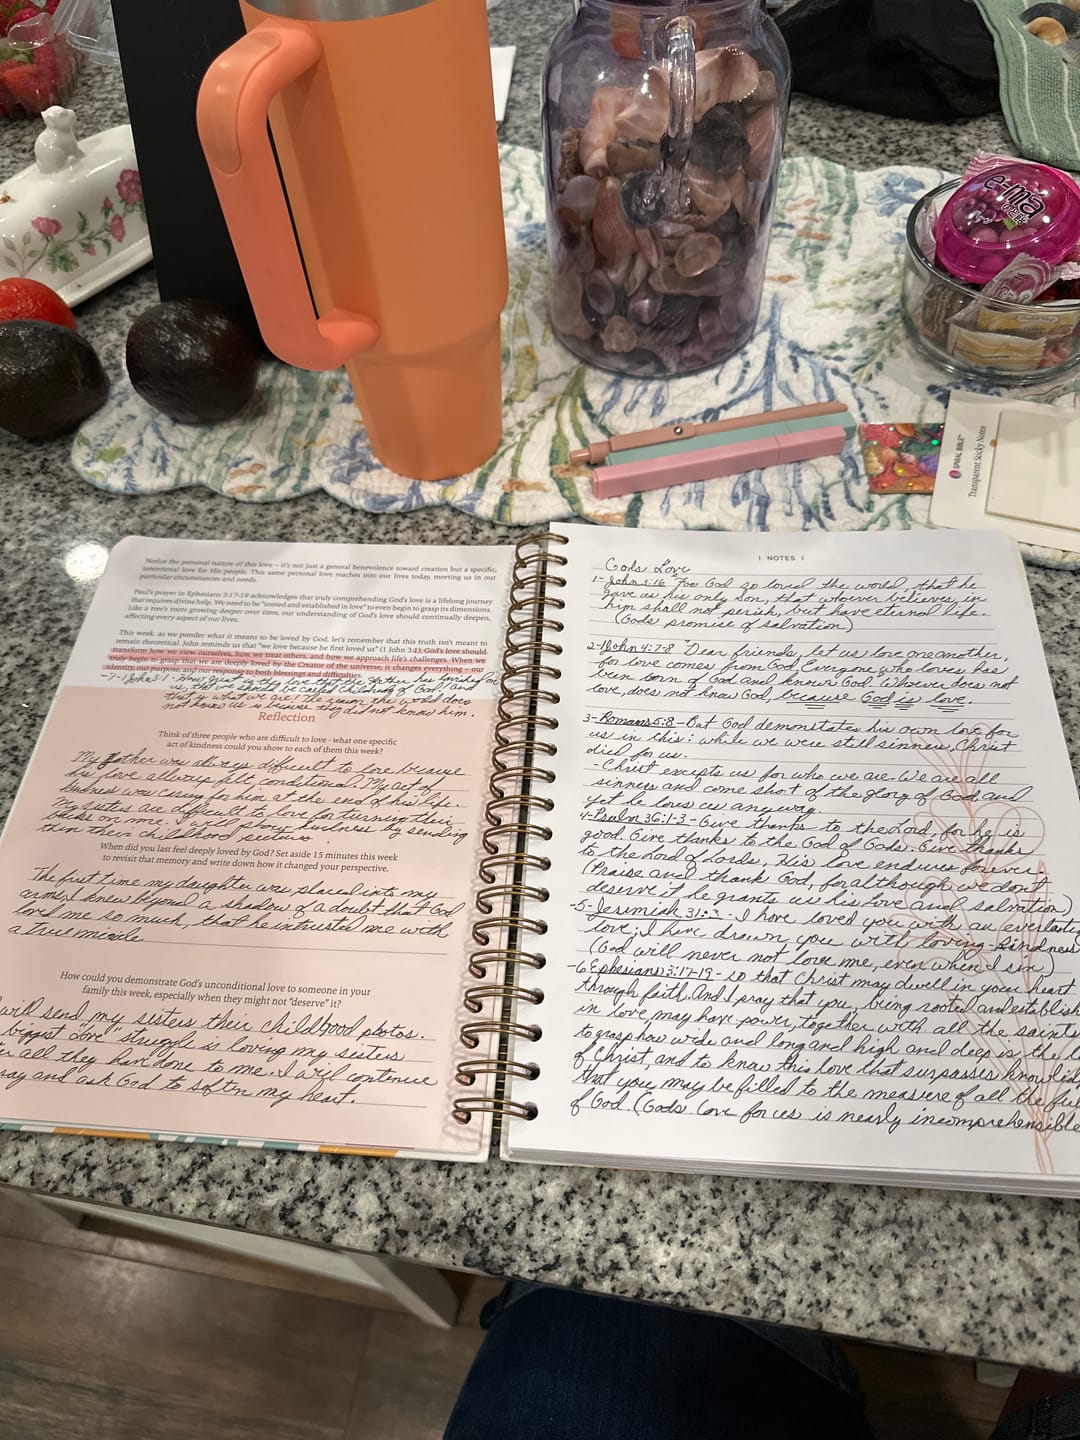 e-ma
SPIRAL BIBLE™
Transparent Sticky Notes
Notice the personal nature of this love – it's not just a general benevolence toward creation but a specific,
intentional love for His people. This same personal love reaches into our lives today, meeting us in our
particular circumstances and needs.
Paul's prayer in Ephesians 3:17-19 acknowledges that truly comprehending God's love is a lifelong journey
that requires divine help. We need to be "rooted and established in love" to even begin to grasp its dimensions.
Like a tree's roots growing deeper over time, our understanding of God's love should continually deepen,
affecting every aspect of our lives.
This week, as we ponder what it means to be loved by God, let's remember that this truth isn't meant to
remain theoretical. John reminds us that "we love because he first loved us" (1 John 3:1). God's love should
transform how we view ourselves, how we treat others, and how we approach life's challenges. When we
truly begin to grasp that we are deeply loved by the Creator of the universe, it changes everything – our
identity, our purpose, and our response to both blessings and difficulties.
John 3:1 - How great is the love that the Father has lavished on
us, that we should be called children of God! and
that is what we are! The reason the world does
not know us is because they did not know him.
Reflection
Think of three people who are difficult to love - what one specific
act of kindness could you show to each of them this week?
My father was always difficult to love because
his love always felt conditional. My act of
kindness was caring for him at the end of his life.
My sisters are difficult to love for turning their
backs on me. I will show kindness by sending
them their childhood pictures.
When did you last feel deeply loved by God? Set aside 15 minutes this week
to revisit that memory and write down how it changed your perspective.
The first time my daughter was placed into my
arms, I knew beyond a shadow of a doubt that God
loved me so much, that he intrusted me with
a true miricle.
How could you demonstrate God's unconditional love to someone in your
family this week, especially when they might not "deserve" it?
will send my sisters their childhood photos.
biggest "love" struggle is loving my sisters
all they have done to me. I will continue
and ask God to soften my heart.
| NOTES |
Gods Love
1- John 3:16 "For God so loved the world, that he
gave us his only Son, that whoever believes, in
him shall not perish, but have eternal life.
(Gods promise of salvation)
2- 1 John 4:7-8 "Dear friends, let us love one another,
for love comes from God. Everyone who loves has
been born of God and knows God. Whoever does not
love, does not know God, because God is love.
3- Romans 5:8 - But God demonstates his own love for
us in this: while we were still sinners, Christ
died for us.
- Christ excepts us for who we are. We are all
sinners and come short of the glory of God and
yet he loves us anyway.
4- Psalm 36:1-3 - Give thanks to the Lord, for he is
good. Give thanks to the God of Gods. Give thanks
to the Lord of Lords, His love endures forever.
(Praise and thank God, for although we don't
deserve it he grants us his Love and salvation)
-5- Jerimiah 31:3 - I have loved you with an everlasti
love; I have drawn you with loving-kindness
(God will never not love me, even when I sin)
-6 Ephesians 3:17-19 - so that Christ may dwell in your heart
through faith. And I pray that you, being rooted and establish
in love, may have power, together with all the saints
to grasp how wide and long and high and deep is the l
of Christ, and to know this love that surpasses knowled
that you may be filled to the measure of all the ful
of God. (Gods love for us is nearly incomprehensible